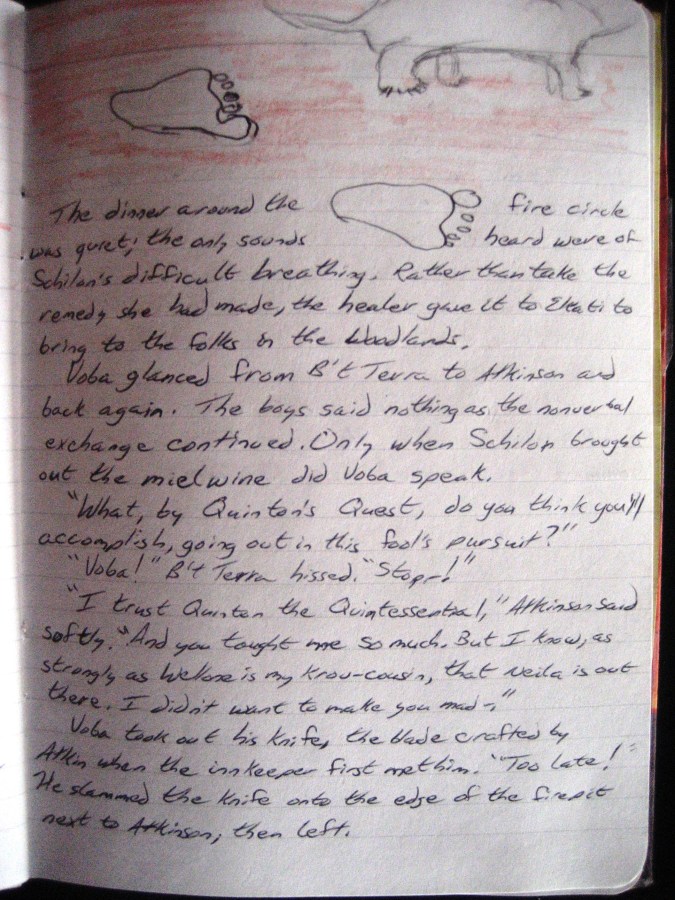 The dinner around the fire circle
was quiet; the only sounds heard were of
Schilon's difficult breathing. Rather than take the
remedy she had made, the healer gave it to Ekati to
bring to the folks in the Woodlands.
Voba glanced from B't Terra to Atkinson and
back again. The boys said nothing as the nonverbal
exchange continued. Only when Schilon brought
out the mielwine did Voba speak.
"What, by Quinton's Quest, do you think you'll
accomplish, going out in this fool's pursuit?"
"Voba!" B't Terra hissed. "Stop-!"
"I trust Quinton the Quintessential," Atkinson said
softly. "And you taught me so much. But I know, as
strongly as Wellone is my krou-cousin, that Neila is out
there. I didn't want to make you mad-"
Voba took out his knife, the blade crafted by
Atkin when the innkeeper first met him. "Too late!"
He slammed the knife onto the edge of the firepit
next to Atkinson, then left.